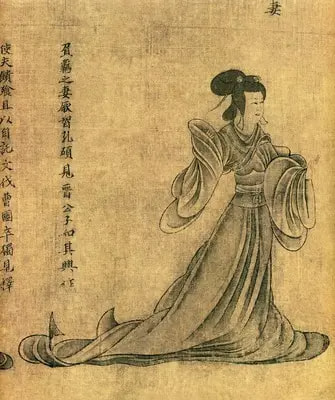 妻
負羈之妻厥智孔碩見晉公子知其興作
使夫饋飧且以自託文伐曹國卒獨見釋